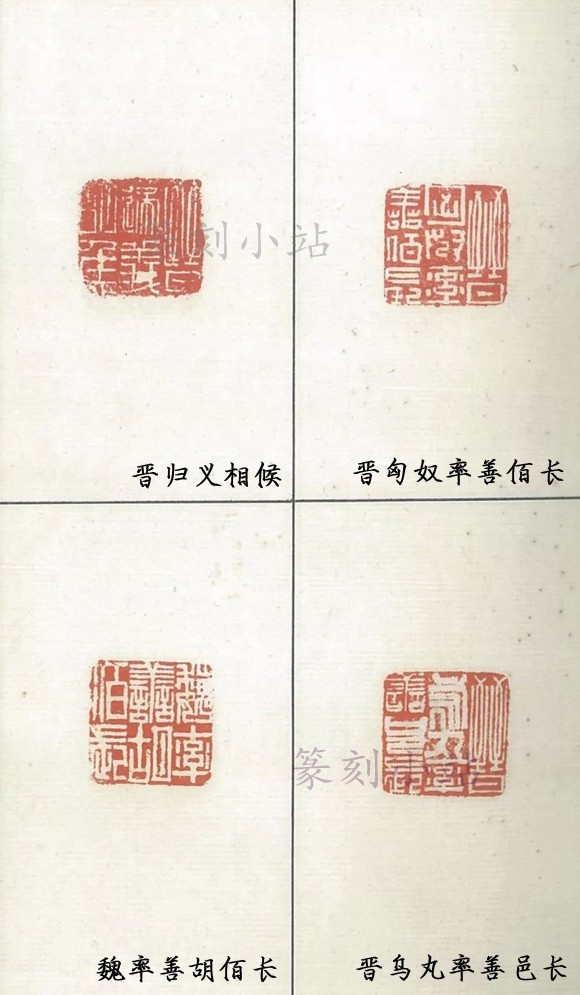 篆刻小站
晋归义相候
晋匈奴率善佰长
魏率善胡佰长
篆刻小站
晋乌丸率善邑长